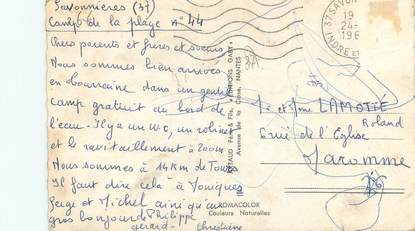 Savonnières (37)
Camp de la plage n° 44
Chers parents et frères et soeurs
Nous sommes bien arrivés
en tourraine dans un gentil
camp gratuit au bord de
l'eau - Il y a un WC, un robinet
et le ravitaillement à 200m
Nous sommes à 14 Km de Tours
Il faut dire cela à Monique
Serge et Michel ainsi qu'un
gros bonjour Philippe
gérard - Christiane
37 SAVON
19
24-
196
INDRE ET
Père & Fils, EDITIONS GABY
Avenue de la Close, NANTES
ROMACOLOR
Couleurs Naturelles
Mr et Mme LAMOTTE
Roland
6 rue de l'Eglise
Maromme
76